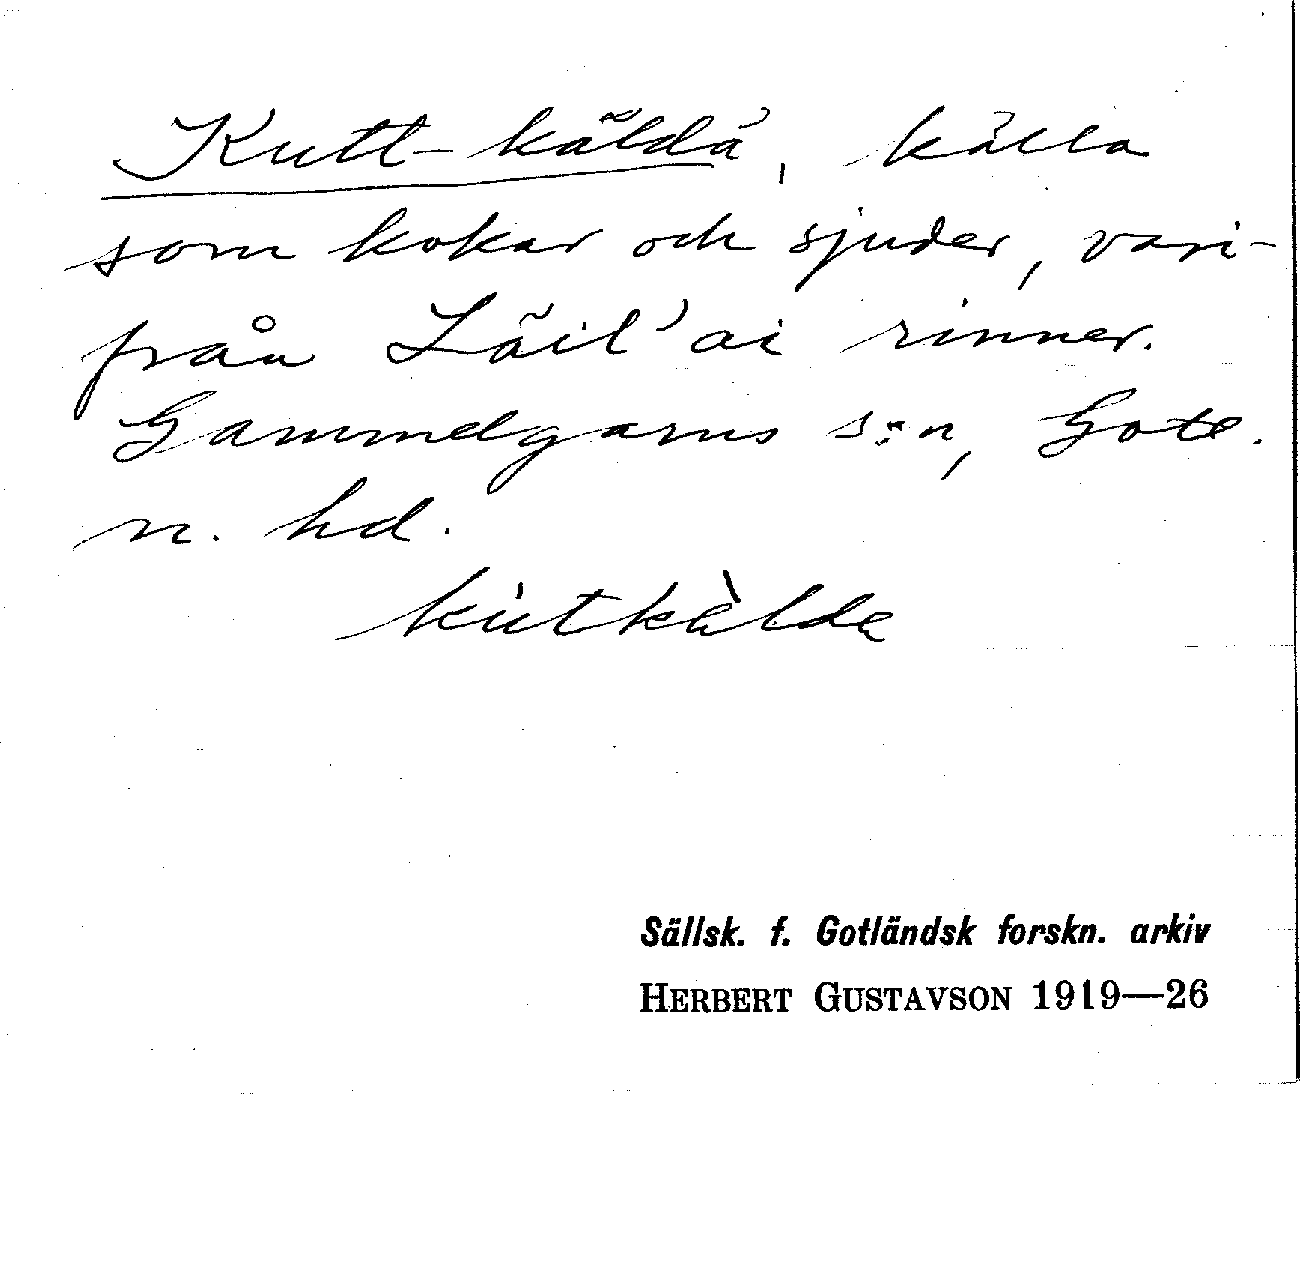 Kutt-käldä, källa
som kokar och sjuder, vari-
från Läil'ai rinner.
Gammelgarns s:n, Gotl.
n. hd.
kùtkälda
Sällsk. f. Gotländsk forskn. arkiv
HERBERT GUSTAVSON 1919—26